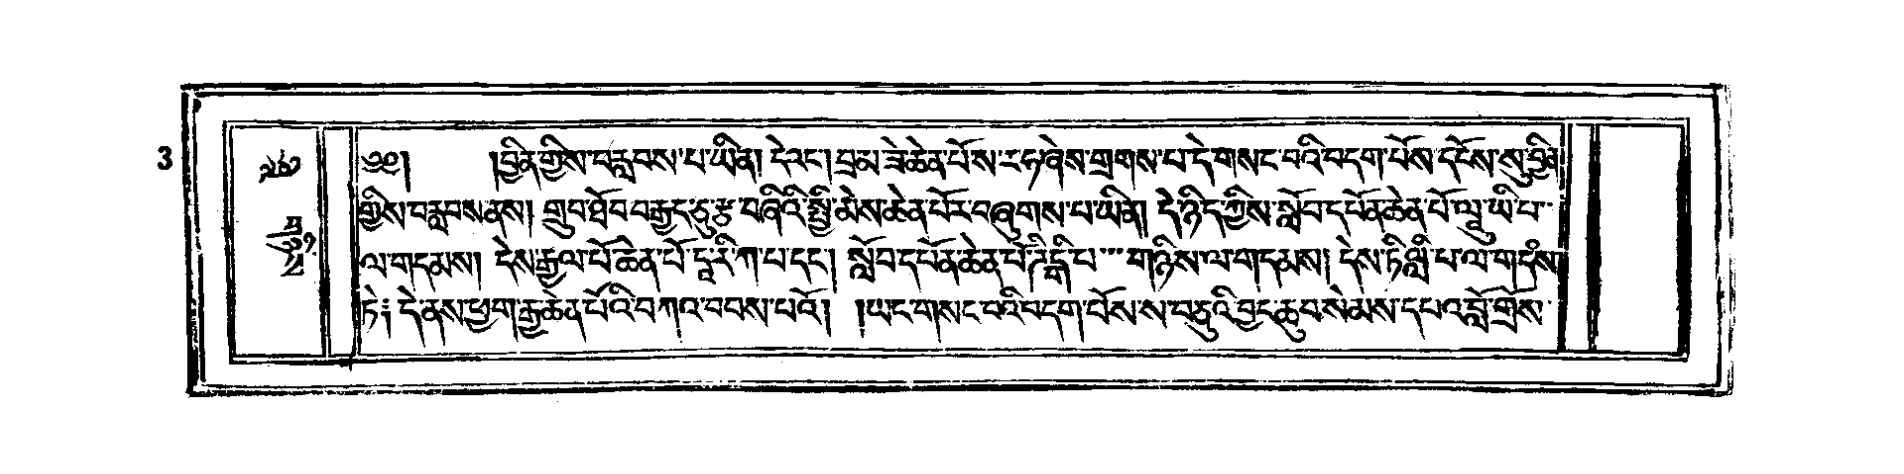 3
༄༅། །བྱིན་གྱིས་བརླབས་པ་ཡིན། དེ་འང་། བྲམ་ཟེ་ཆེན་པོ་ས་ར་ཧ་ཞེས་གྲགས་པ་དེ་གསང་བའི་བདག་པོས་དངོས་སུ་བྱིན་
གྱིས་བརླབས་ནས། གྲུབ་ཐོབ་བརྒྱད་ཅུ་རྩ་བཞིའི་སྤྱི་མེས་ཆེན་པོར་བཞུགས་པ་ཡིན། དེ་ཉིད་ཀྱིས་སློབ་དཔོན་ཆེན་པོ་ལཱུ་ཡི་པ་
ལ་གདམས། དེས་རྒྱལ་པོ་ཆེན་པོ་དཱ་རི་ཀ་པ་དང་། སློབ་དཔོན་ཆེན་པོ་ཌིངྒི་པ་གཉིས་ལ་གདམས། དེས་ཏི་ལླི་པ་ལ་གདམས།
ཏེ༔ དེ་ནས་ཕྱག་རྒྱ་ཆེན་པོའི་བཀའ་བབས་པའོ། །ཡང་གསང་བའི་བདག་པོས་ས་བཅུའི་བྱང་ཆུབ་སེམས་དཔའ་བློ་གྲོས་